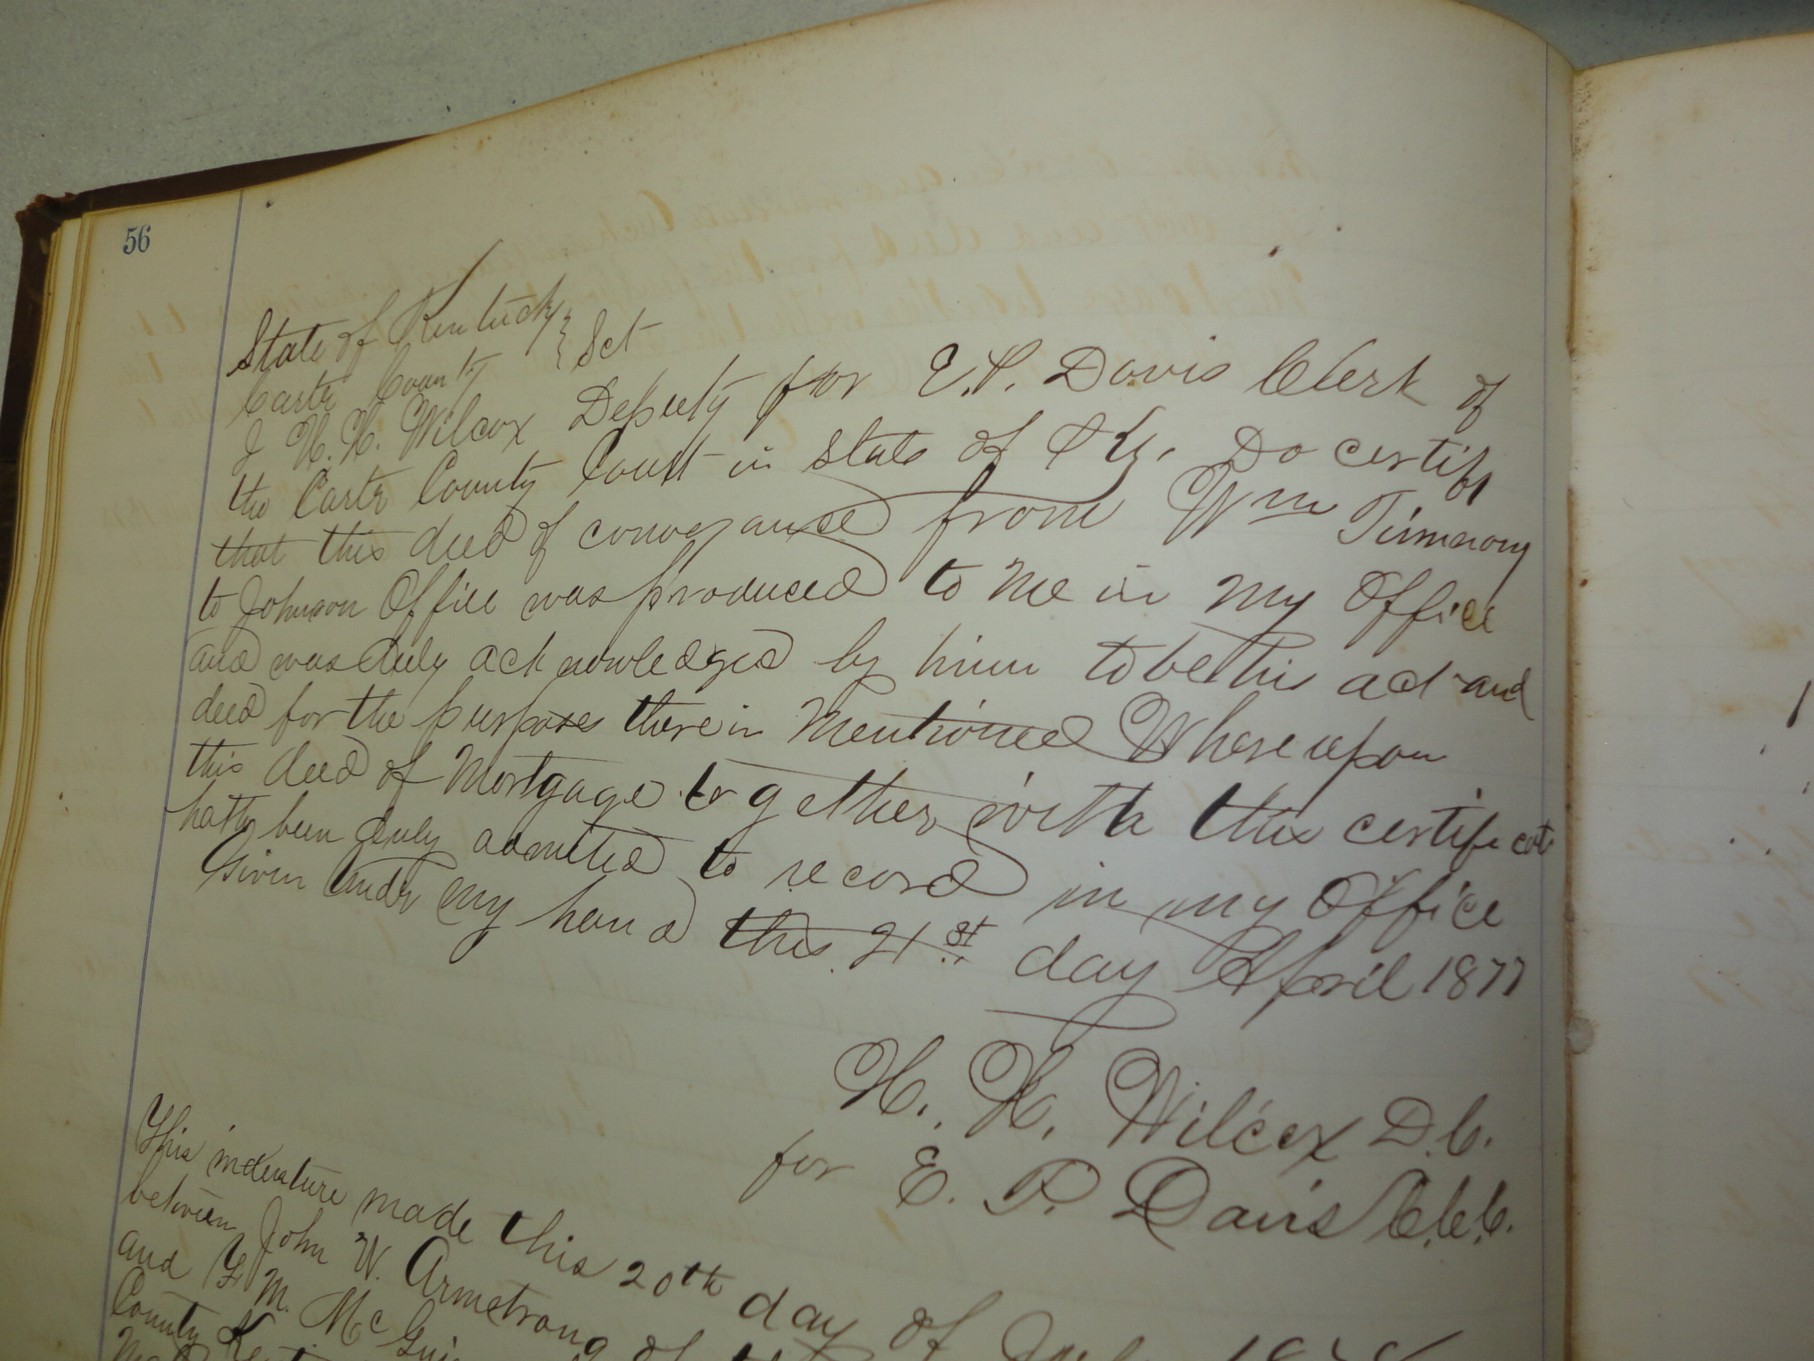 56
State of Kentucky } Sct
Carter County }
I H. H. Wilcox Deputy for E. P. Davis Clerk of
the Carter County Court in State of Ky. Do certify
that this deed of conveyance from Wm
to Johnson Office was produced to Me in My Office
and was duly acknowledged by him to be his act and
deed for the purposes therein Mentioned Whereupon
this deed of Mortgage together with this certificate
hath been duly admitted to record in my Office
Given under my hand this 21st day April 1877
H. H. Wilcox D.C.
for E. P. Davis C.C.C.
This indenture made this 20th day of
between John W. Armstrong of
and M.
County